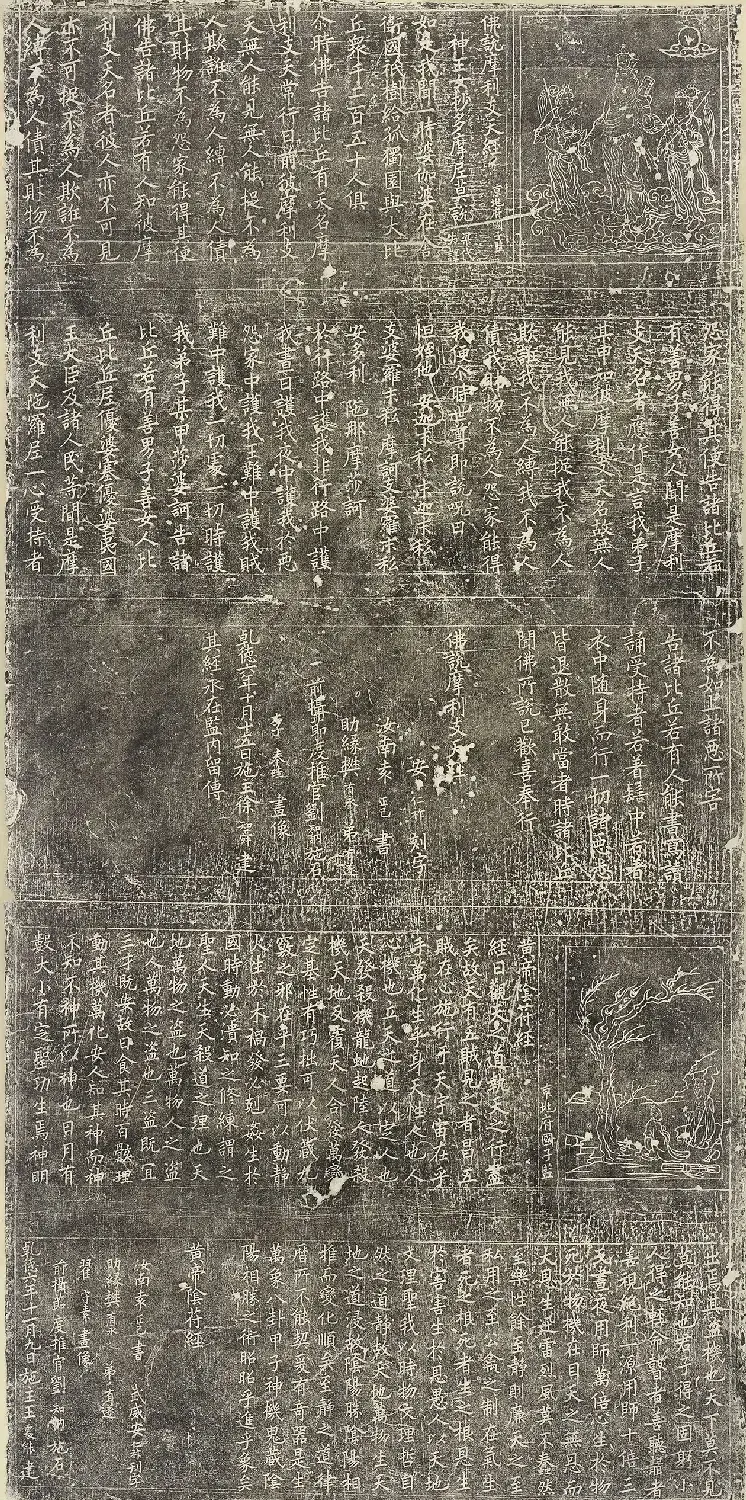 佛說摩利支天經 京兆府國子監
神王女抄多摩尼莫說
如是我聞一時婆伽婆在舍
衛國祇樹給孤獨園與大比
丘衆千二百五十人俱
尒時佛告諸比丘有天名摩
利支天常行日前彼摩利支
天無人能見無人能捉不為
人欺誑不為人縛不為人債
其財物不為怨家能得其便
佛告諸比丘若有人知彼摩
利支天名者彼人亦不可見
亦不可捉不為人欺誑不為
人縛不為人債其財物不為
怨家能得其便告諸比丘若
有善男子善女人聞是摩利
支天名者應作是言我弟子
某甲知彼摩利支天名故無人
能見我無人能捉我不為人
欺誑我不為人縛我不為人
債我財物不為人怨家能得
我便尒時世尊即說呪曰
怛姪他 安迦末私 末迦末私
支婆羅末私 摩訶支婆羅末私
安多利 陁那摩莎訶
於行路中護我非行路中護
我晝日護我夜中護我於惡
怨家中護我王難中護我賊
難中護我一切處一切時護
我弟子某甲莎婆訶告諸
比丘若有善男子善女人比
丘比丘尼優婆塞優婆夷國
王大臣及諸人民等聞是摩
利支天陁羅尼一心受持者
不為如上諸惡所害
告諸比丘若有人能書寫讀
誦受持者若著髻中若著
衣中随身而行一切諸惡悉
皆退散無敢當者時諸比丘
聞佛所說已歡喜奉行
佛說摩利支天經
安仁祚 刻字
汝南袁正己 書
助緣樊 弟
前攝節度推官劉 施石
李奉珪 畫像
乾德六年十月十五日施主徐 建
其經永在監內留傳
黃帝陰符經 京兆府國子監
經曰觀天之道執天之行盡
矣故天有五賊見之者昌五
賊在心施行于天宇宙在乎
手萬化生乎身天性人也人
心機也立天之道以定人也
天發殺機龍蛇起陸人發殺
機天地反覆天人合發萬變
定基性有巧拙可以伏藏九
竅之邪在乎三要可以動靜
火生於木禍發必剋姦生於
國時動必潰知之修練謂之
聖人天生天殺道之理也天
地萬物之盜也萬物人之盜
也人萬物之盜也三盜既宜
三才既安故曰食其時百骸理
動其機萬化安人知其神而神
不知不神所以神也日月有
數大小有定聖功生焉神明
出焉其盜機也天下莫不見
莫能知也君子得之固躬小
人得之輕命瞽者善聽聾者
善視絶利一源用師十倍三
反晝夜用師萬倍心生於物
死於物機在目天之無恩而
大恩生迅雷烈風莫不蠢然
至樂性餘至靜則廉天之至
私用之至公禽之制在氣生
者死之根死者生之根恩生
於害害生於恩愚人以天地
文理聖我以時物文理哲自
然之道靜故天地萬物生天
地之道浸故陰陽勝陰陽相
推而變化順矣至靜之道律
曆所不能契爰有奇器是生
萬象八卦甲子神機鬼藏陰
陽相勝之術昭昭乎進乎象矣
黃帝陰符經
汝南袁正己書 武威安仁祚刻字
助緣樊 弟
翟守素畫像
前攝節度推官劉知訥施石
乾德六年十一月九日施主王 建